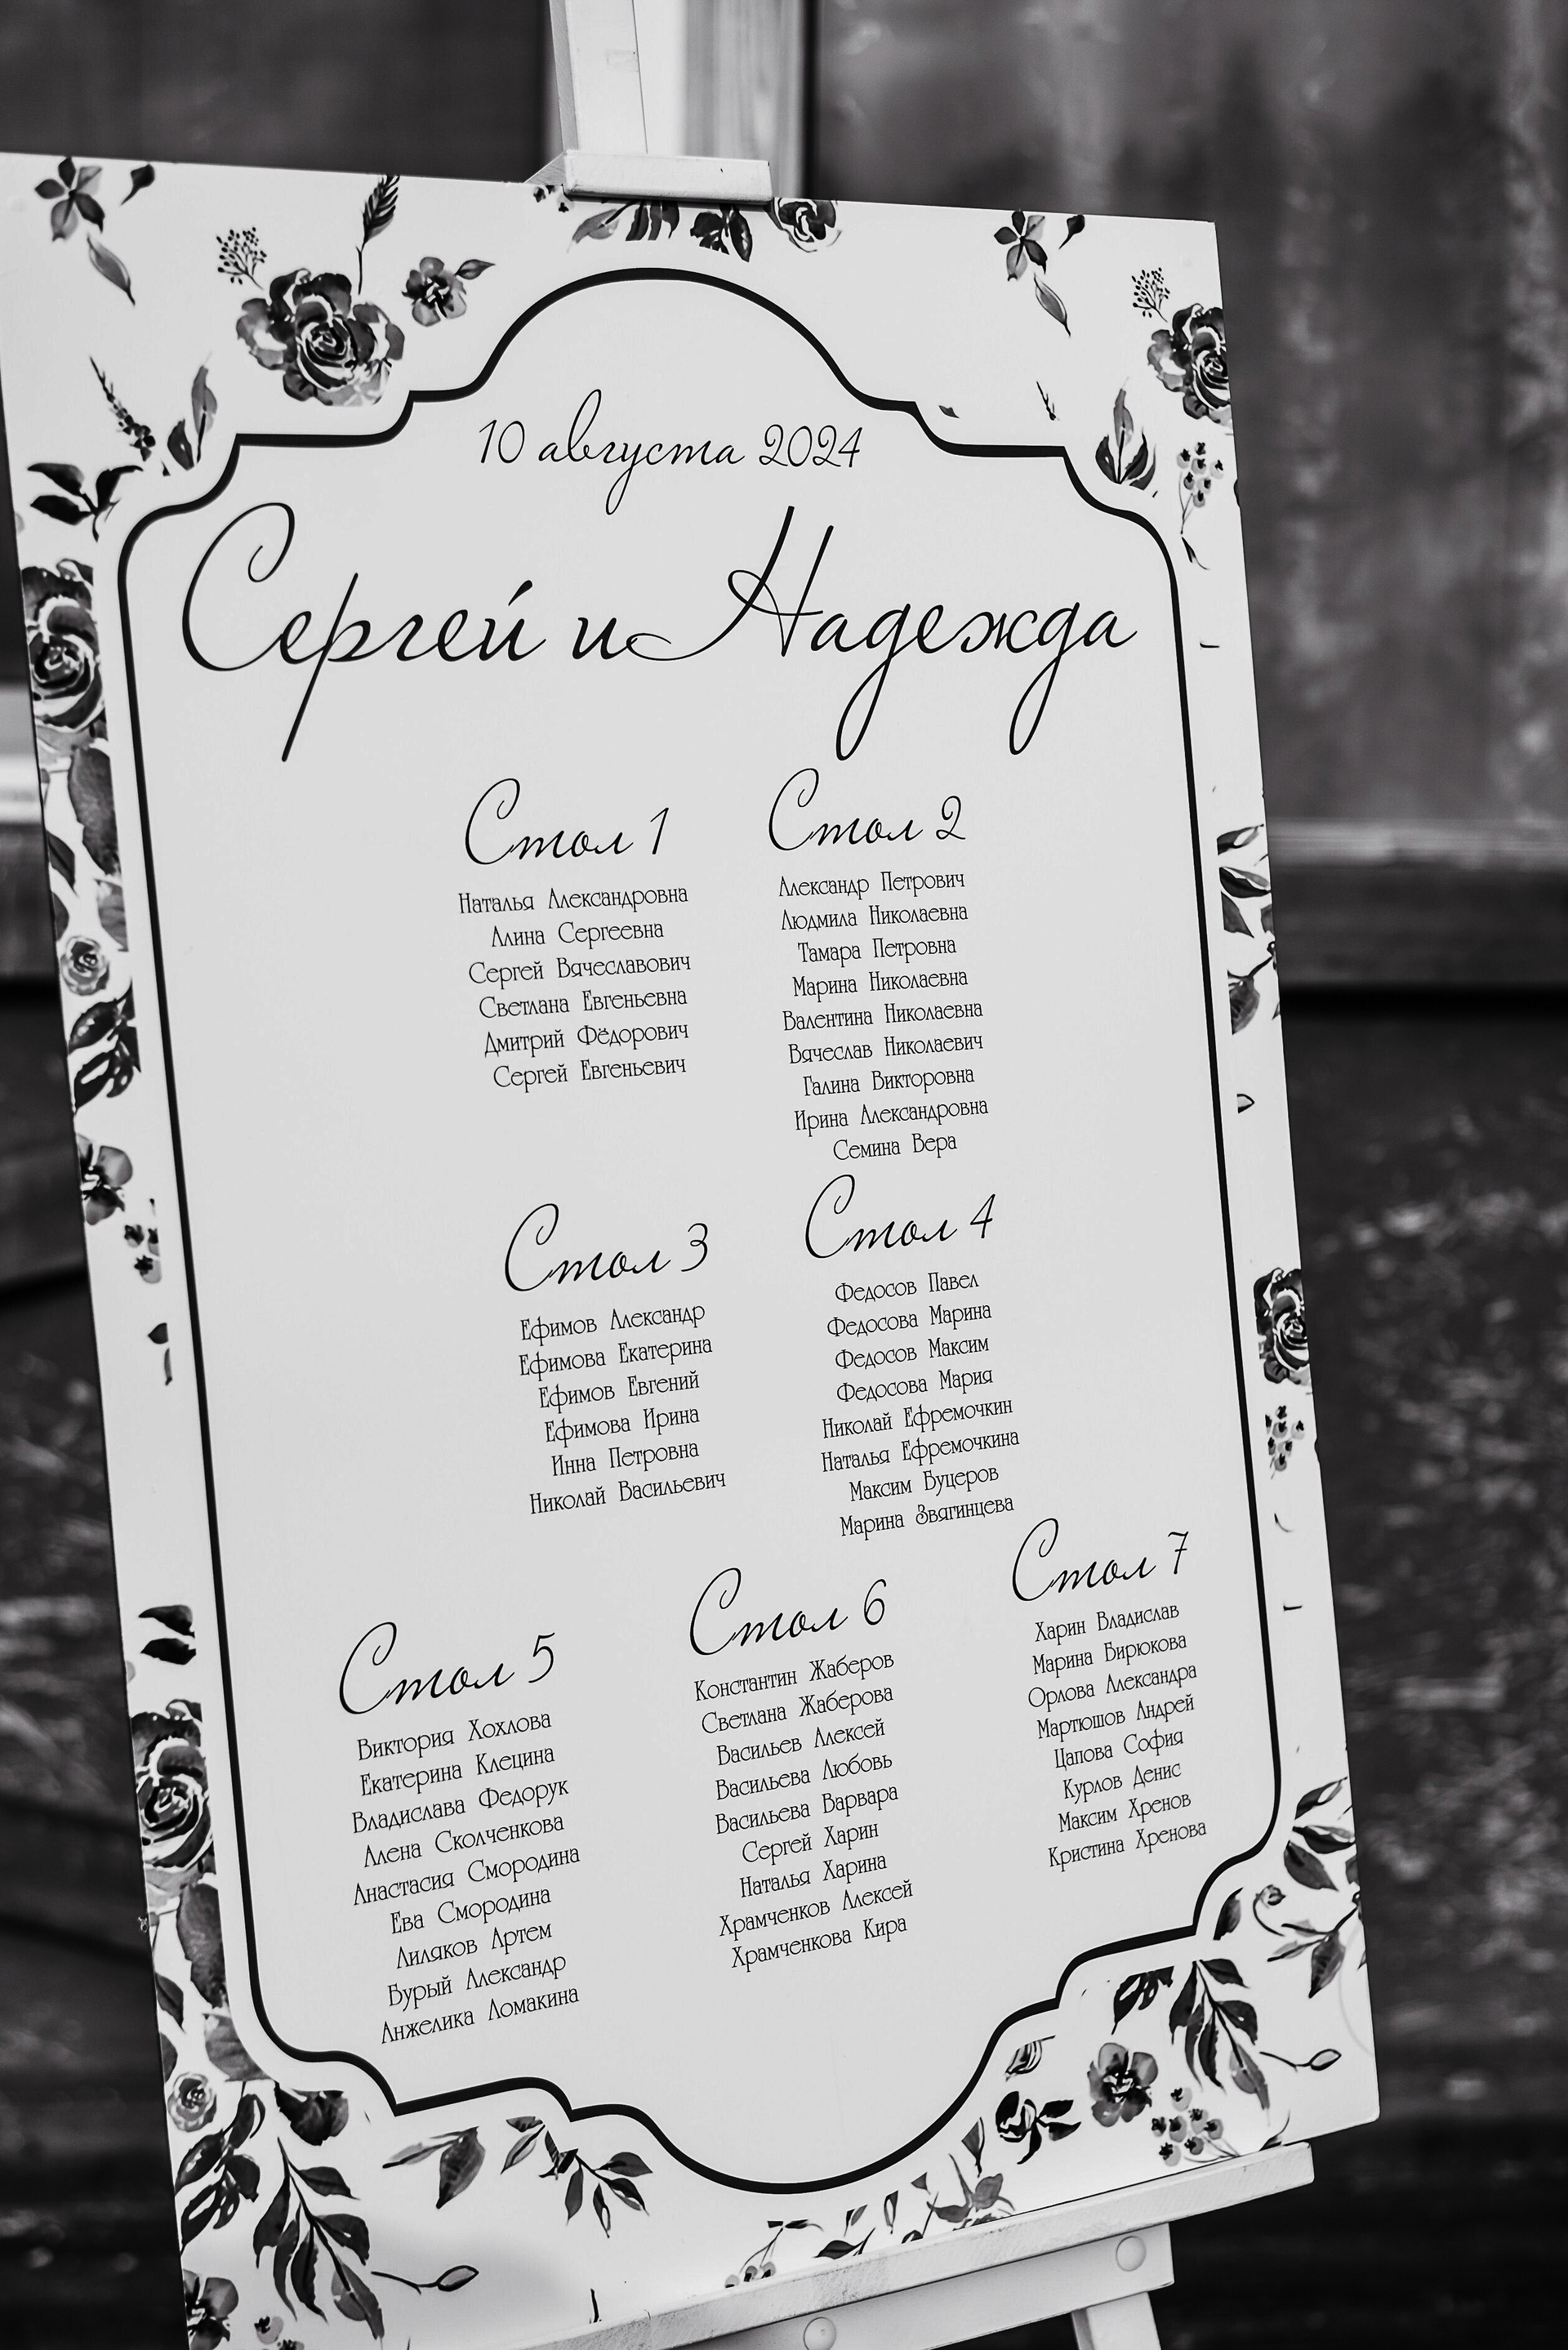 10 августа 2024
Сергей и Надежда
Стол 1
Наталья Александровна
Алина Сергеевна
Сергей Вячеславович
Светлана Евгеньевна
Дмитрий Фёдорович
Сергей Евгеньевич
Стол 2
Александр Петрович
Людмила Николаевна
Тамара Петровна
Марина Николаевна
Валентина Николаевна
Вячеслав Николаевич
Галина Викторовна
Ирина Александровна
Семина Вера
Стол 3
Ефимов Александр
Ефимова Екатерина
Ефимов Евгений
Ефимова Ирина
Инна Петровна
Николай Васильевич
Стол 4
Федосов Павел
Федосова Марина
Федосов Максим
Федосова Мария
Николай Ефремочкин
Наталья Ефремочкина
Максим Буцеров
Марина Звягинцева
Стол 5
Виктория Хохлова
Екатерина Клецина
Владислава Федорук
Алена Сколченкова
Анастасия Смородина
Ева Смородина
Лиляков Артем
Бурый Александр
Анжелика Ломакина
Стол 6
Константин Жаберов
Светлана Жаберова
Васильев Алексей
Васильева Любовь
Васильева Варвара
Сергей Харин
Наталья Харина
Храмченков Алексей
Храмченкова Кира
Стол 7
Харин Владислав
Марина Бирюкова
Орлова Александра
Мартюшов Андрей
Цапова София
Курлов Денис
Максим Хренов
Кристина Хренова